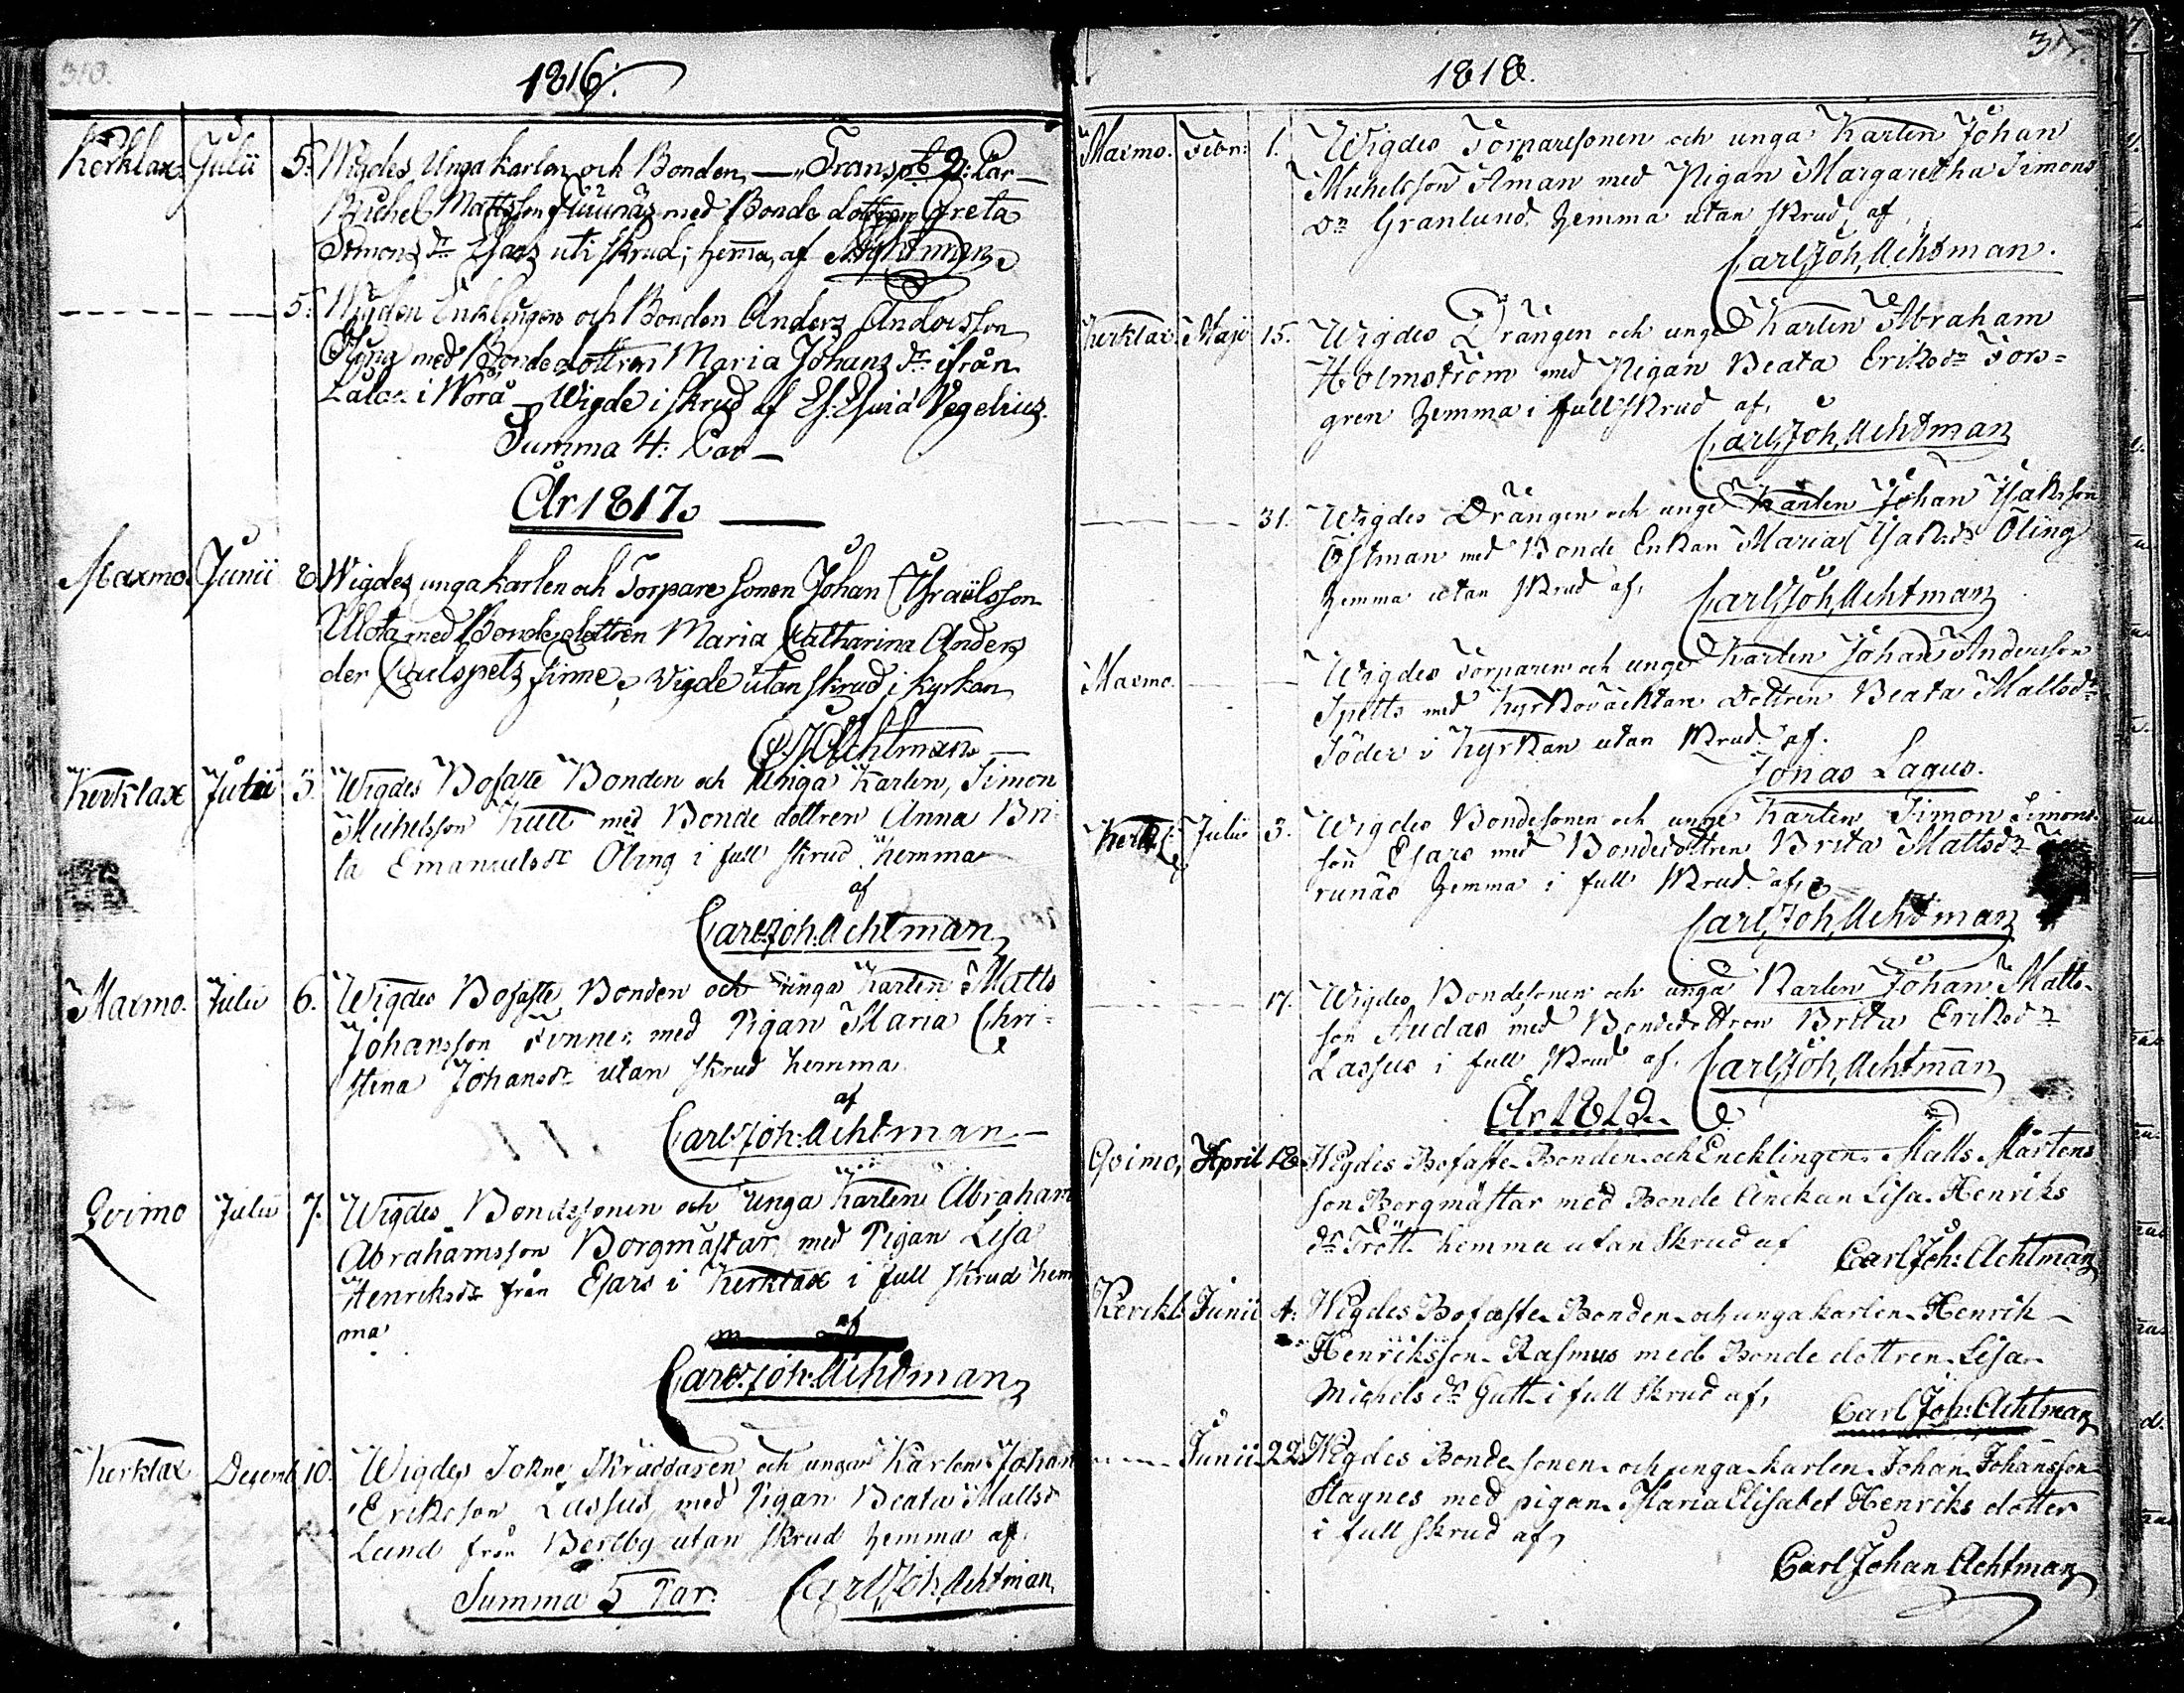 310.
1816.
Kerklax Julii 5. Wigdes Unga karlen och Bonden, — Transp. 2: Par —
Michel Mattsson med Bonde dottren Greta
Simons dr Esars uti skrud, hemma, af Achtman
5. Enklingen och Bonden Anders Andersson
med Bondedottren Maria Johans dr ifrån
i Wörå — Wigde i skrud af Vegelius.
Summa 4: Par —
År 1817.
Maxmo. Junii 8. Wigdes unga karlen och Torpare sonen Johan Israëlsson
med Bondedottren Maria Catharina Anders
der Finne, Wigde utan skrud i kyrkan
C. J. Achtman —
Kerklax Julii 3. Wigdes Bofaste Bonden och Unga Karlen, Simon
Michelsson Kull med Bonde dottren Anna Bri-
ta Emanuelsdr Öling i full skrud hemma
af
Carl Joh: Achtman
Maxmo. Julii 6. Wigdes Bofaste Bonden och unga Karlen Matts
Johansson Finne, med Pigan Maria Chri=
stina Johansdr utan skrud hemma
af
Carl Joh: Achtman —
Qvimo Julii 7. Wigdes Bondesonen och unga Karlen Abraham
Abrahamsson Borgmästar med Pigan Lisa
Henriksdr från Esars i Kerklax i full skrud hem
ma
af
Carl Joh: Achtman
Kerklax Decemb. 10. Wigdes Sokne Skräddaren och unga Karlen Johan
Eriksson Lassus, med Pigan Beata Mattsd
Lund från Bertby utan skrud hemma af
Summa 5 Par. Carl Joh. Achtman
1818.
Maxmo. Febr: 1. Wigdes Torparesonen och unga Karlen Johan
Michelsson Åman med Pigan Margaretha Simons
Dr Granlund, hemma utan skrud, af
Carl Joh, Achtman.
Kerklax Maji 15. Wigdes Drängen och unge Karlen Abraham
Holmström med Pigan Beata Eriksdr Fors=
gren hemma i full skrud af,
Carl Joh, Achtman
31. Wigdes Drängen och unge Karlen Johan Isaksson
Östman med Bonde Enkan Maria Isaksdr Öling
hemma utan skrud af, Carl Joh, Achtman
Maxmo. Wigdes Torparen och unge Karlen Johan Andersson
Spetts med Kyrkoväcktare Dottren Beata Mattsdr
Söder i Kyrkan utan skrud af.
Jonas Lagus.
Kerkl. Julii 3. Wigdes Bondesonen och unge Karlen Simon Simons-
son Esars med Bondedottren Brita Mattsdr
runäs hemma i full skrud af,
Carl, Joh, Achtman
17. Wigdes Bondesonen och unga Karlen Johan Matts-
son Audas med Bondedottren Brita Eriksdr
Lassus i full skrud af. Carl, Joh, Achtman
År 1819.
Qvimo, April 18. Wigdes Bofaste Bonden och Encklingen Matts Mårtens
son Borgmästar med Bonde Enckan Lisa Henriks
dr Trött hemma utan skrud af Carl Joh: Achtman
Kerkl. Junii 4. Wigdes Bofaste Bonden och unga karlen Henrik
Henriksson Rasmus med Bonde dottren Lisa
Michels dr Gutt i full skrud af,
Carl Joh: Achtman
Junii 22. Wigdes Bonde sonen och unga karlen Johan Johansson
Hagnes med pigan Maria Elisabet Henriks dotter
i full skrud af,
Carl Johan Achtman